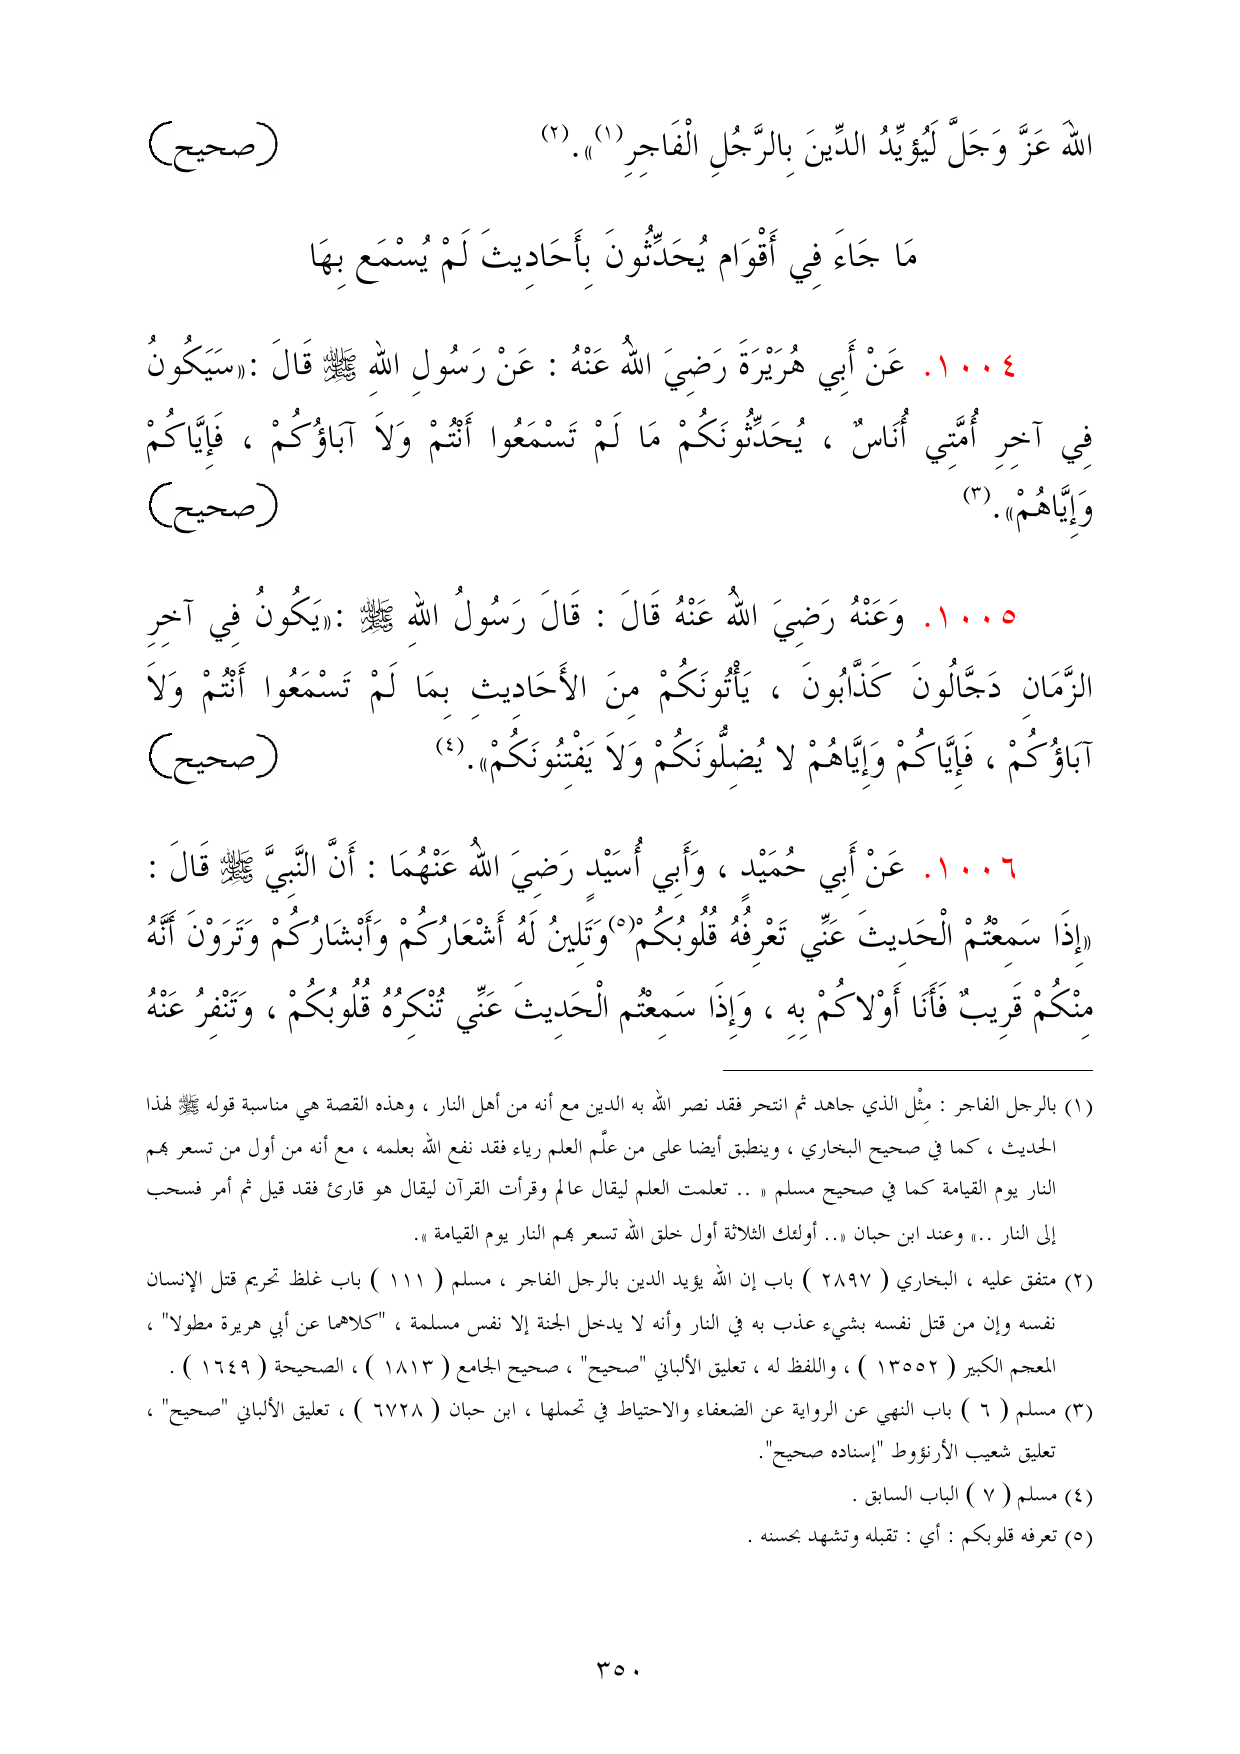 اللهَ عَزَّ وَجَلَّ لَيُؤَيِّدُ الدِّينَ بِالرَّجُلِ الْفَاجِرِ(١)».(٢) (صحيح)
مَا جَاءَ فِي أَقْوَام يُحَدِّثُونَ بِأَحَادِيثَ لَمْ يُسْمَع بِهَا
١٠٠٤. عَنْ أَبِي هُرَيْرَةَ رَضِيَ اللهُ عَنْهُ : عَنْ رَسُولِ اللهِ ﷺ قَالَ :«سَيَكُونُ
فِي آخِرِ أُمَّتِي أُنَاسٌ ، يُحَدِّثُونَكُمْ مَا لَمْ تَسْمَعُوا أَنْتُمْ وَلاَ آبَاؤُكُمْ ، فَإِيَّاكُمْ
وَإِيَّاهُمْ».(٣) (صحيح)
١٠٠٥. وَعَنْهُ رَضِيَ اللهُ عَنْهُ قَالَ : قَالَ رَسُولُ اللهِ ﷺ :«يَكُونُ فِي آخِرِ
الزَّمَانِ دَجَّالُونَ كَذَّابُونَ ، يَأْتُونَكُمْ مِنَ الأَحَادِيثِ بِمَا لَمْ تَسْمَعُوا أَنْتُمْ وَلاَ
آبَاؤُكُمْ ، فَإِيَّاكُمْ وَإِيَّاهُمْ لا يُضِلُّونَكُمْ وَلاَ يَفْتِنُونَكُمْ».(٤) (صحيح)
١٠٠٦. عَنْ أَبِي حُمَيْدٍ ، وَأَبِي أُسَيْدٍ رَضِيَ اللهُ عَنْهُمَا : أَنَّ النَّبِيَّ ﷺ قَالَ :
«إِذَا سَمِعْتُمْ الْحَدِيثَ عَنِّي تَعْرِفُهُ قُلُوبُكُمْ(٥)وَتَلِينُ لَهُ أَشْعَارُكُمْ وَأَبْشَارُكُمْ وَتَرَوْنَ أَنَّهُ
مِنْكُمْ قَرِيبٌ فَأَنَا أَوْلاكُمْ بِهِ ، وَإِذَا سَمِعْتُم الْحَدِيثَ عَنِّي تُنْكِرُهُ قُلُوبُكُمْ ، وَتَنْفِرُ عَنْهُ
(١) بالرجل الفاجر : مِثْل الذي جاهد ثم انتحر فقد نصر الله به الدين مع أنه من أهل النار ، وهذه القصة هي مناسبة قوله ﷺ لهذا
الحديث ، كما في صحيح البخاري ، وينطبق أيضا على من علَّم العلم رياء فقد نفع الله بعلمه ، مع أنه من أول من تسعر بهم
النار يوم القيامة كما في صحيح مسلم « .. تعلمت العلم ليقال عالم وقرأت القرآن ليقال هو قارئ فقد قيل ثم أمر فسحب
إلى النار ..» وعند ابن حبان «.. أولئك الثلاثة أول خلق الله تسعر بهم النار يوم القيامة ».
(٢) متفق عليه ، البخاري ( ٢٨٩٧ ) باب إن الله يؤيد الدين بالرجل الفاجر ، مسلم ( ١١١ ) باب غلظ تحريم قتل الإنسان
نفسه وإن من قتل نفسه بشيء عذب به في النار وأنه لا يدخل الجنة إلا نفس مسلمة ، "كلاهما عن أبي هريرة مطولا" ،
المعجم الكبير ( ١٣٥٥٢ ) ، واللفظ له ، تعليق الألباني "صحيح" ، صحيح الجامع ( ١٨١٣ ) ، الصحيحة ( ١٦٤٩ ) .
(٣) مسلم ( ٦ ) باب النهي عن الرواية عن الضعفاء والاحتياط في تحملها ، ابن حبان ( ٦٧٢٨ ) ، تعليق الألباني "صحيح" ،
تعليق شعيب الأرنؤوط "إسناده صحيح".
(٤) مسلم ( ٧ ) الباب السابق .
(٥) تعرفه قلوبكم : أي : تقبله وتشهد بحسنه .
٣٥٠